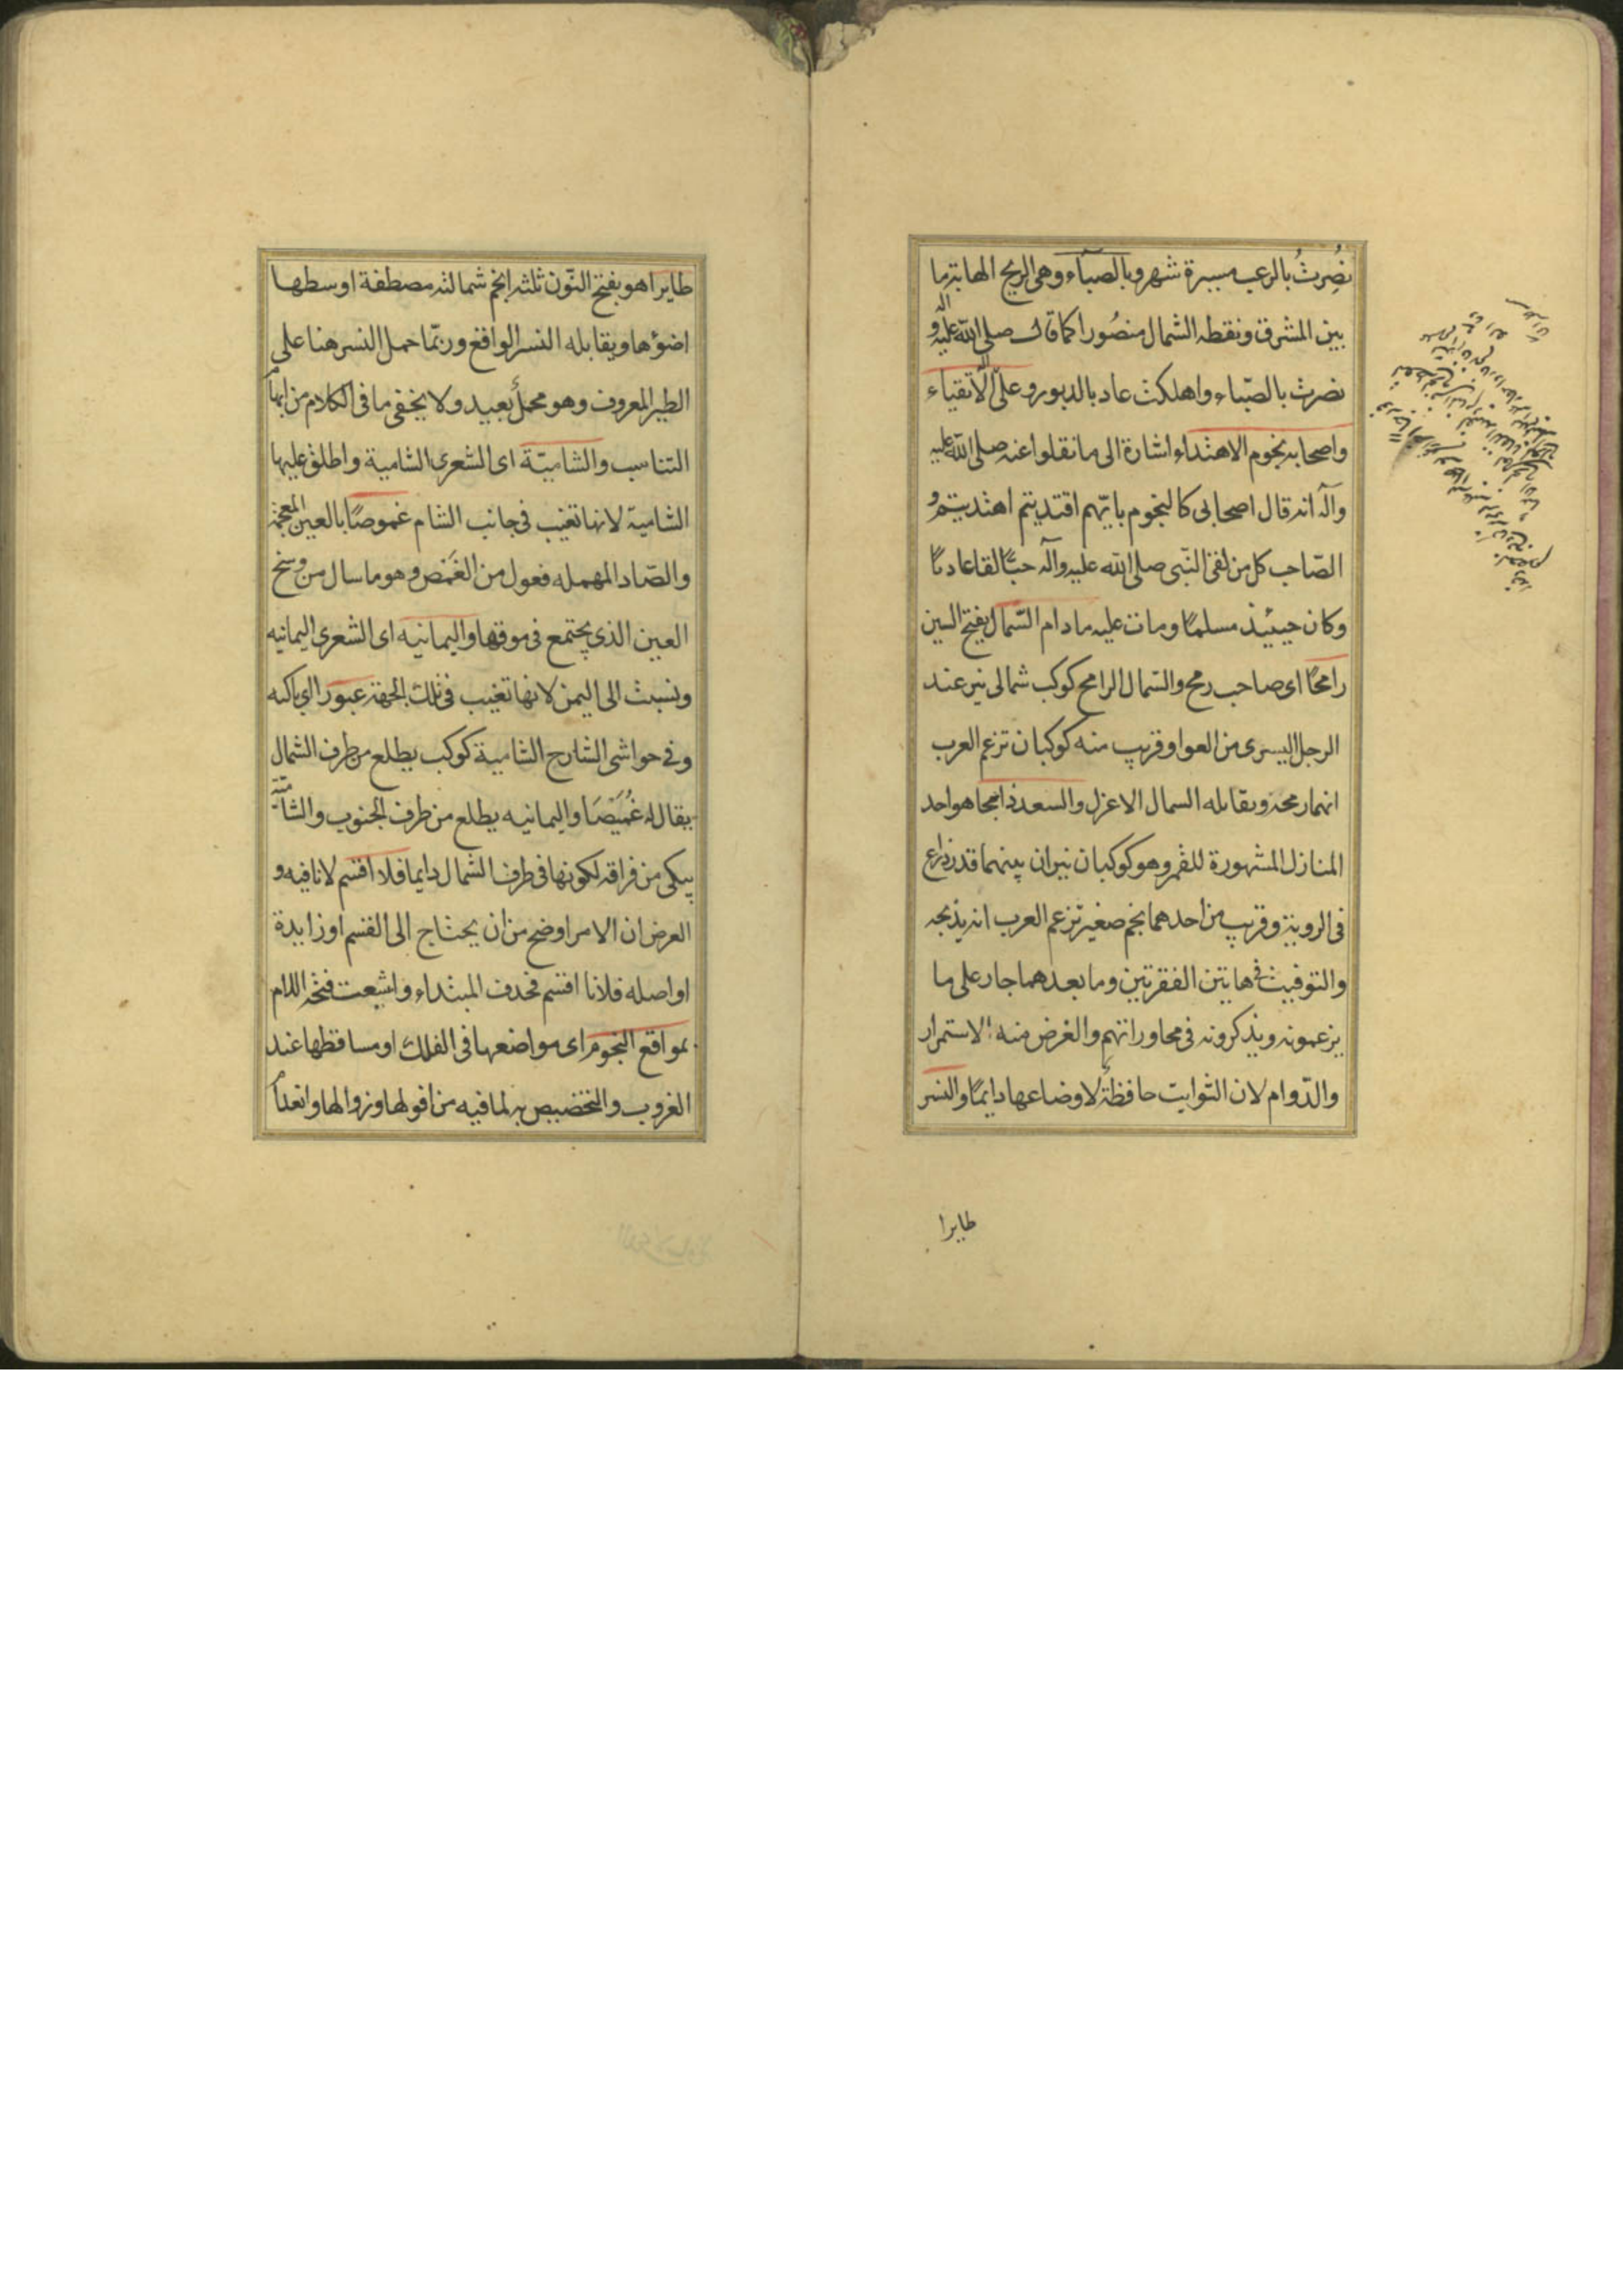 نُصِرتُ بالرعب مسيرة شهر وبالصباء وهى الريح الهابة ما
بين المشرق ونقطه الشمال منصُورا كما قال صلى الله عليه وآله و
نصرت بالصّباء واهلكت عاد بالدبور وعلى الاتقياء
واصحابه نجوم الاهتداء اشارة الى ما نقلوا عنه صلى الله عليه
وآله انه قال اصحابى كالنجوم بايّهم اقتديتم اهتديتم و
الصّاحب كل من لقى النّبى صلى الله عليه وآله حيًّا لقا عاديًا
وكان حينئذ مسلمًا ومات عليه مادام السّمال بفتح السين
رامحًا اى صاحب رمح والسّمال الرامح كوكب شمالى نير عند
الرجل اليسرى من العوا وقريب منه كوكبان تزعم العرب
انهما رمحه ويقابله السمال الاعزل والسعد ذابحا هو احد
المنازل المشهورة للقمر وهو كوكبان نيران بينهما قدر ذراع
فى الروية وقريب من احدهما نجم صغير تزعم العرب انه يذبحه
والتوقيت فى هاتين الفقرتين وما بعدهما جار على ما
يزعمونه ويذكرونه فى محاوراتهم والغرض منه الاستمرار
والدّوام لان الثوابت حافظة لاوضاعها دايمًا والنسر
طايرا
طايرا هو بفتح النّون ثلثه انجم شمالته مصطفة اوسطها
اضوؤها ويقابله النسر الواقع وربّما حمل النسر هنا على
الطير المعروف وهو محمل بعيد ولا يخفى ما فى الكلام من ايهام
التناسب والشاميّة اى الشعرى الشامية واطلق عليها
الشامية لانها تغيب فى جانب الشام غموصًا بالعين المعجمة
والصّاد المهمله فعول من الغَمَص وهو ما سال من وسخ
العين الذى يجتمع فى موقها واليمانيه اى الشعرى اليمانيه
ونسبت الى اليمن لانها تغيب فى تلك الجهة عبورا اى باكيه
وفى حواشى الشارح الشامية كوكب يطلع من طرف الشمال
يقال له غُمَيْصَا واليمانيه يطلع من طرف الجنوب والشامية
يبكى من فراقه لكونها فى طرف الشمال دايما فلا اقسم لا نافيه و
العرض ان الامر اوضح من ان يحتاج الى القسم او زايدة
او اصله فلانا اقسم فحذف المبتداء واشبعت فتحة اللام
بمواقع النجوم اى مواضعها فى الفلك او مساقطها عند
الغروب والتخصيص به لما فيه من افولها وزوالها وانعدام